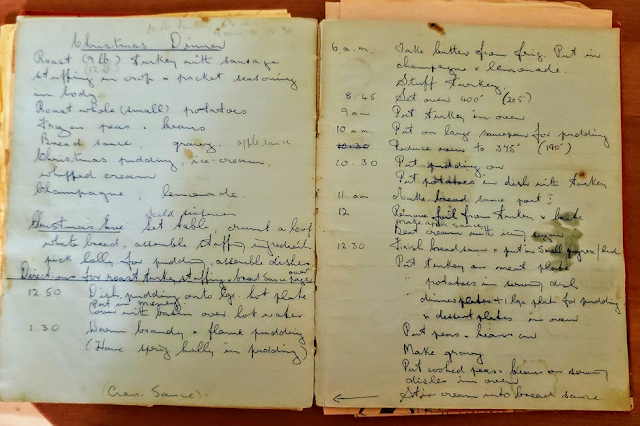 Christmas Dinner
Roast (9 lb) turkey with sausage
stuffing in crop & packet seasoning
in body.
Roast whole (small) potatoes
Frozen peas & beans
Bread sauce, gravy. apple sauce
Christmas pudding, ice-cream,
whipped cream
Champagne, lemonade.
Christmas Eve Set table, crumb a loaf
white bread, assemble stuffing ingredients
pick holly for pudding, assemble dishes
over
Directions for roast turkey, stuffing, bread sauce pages
12 50 Dish pudding onto lge. hot plate
Cover with basin over hot water
1.30 Warm brandy & flame pudding
(Have sprig holly in pudding)
(Cran. Sauce)
6 a.m. Take butter from frig. Put in
champagne & lemonade.
Stuff turkey
8 45 Set oven 400° (205°)
9 am Put turkey in oven
10 a.m. Put on large saucepan for pudding
10.30 Reduce oven to 375° (190°)
10.30 Put pudding on
Put potatoes in dish with turkey
11 am Make bread sauce part I
12 Remove foil from turkey & baste
Beat cream with icing sugar
12.30 Finish bread sauce & put in small
Put turkey on meat plate
" potatoes in serving dish
" dinner plates + 1 lge plate for pudding
& dessert plates in oven
Put peas & beans on
Make gravy
Put cooked peas & beans in serving
dishes in oven
Stir cream into bread sauce